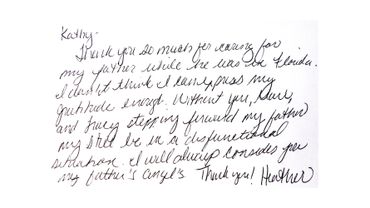 Kathy-
Thank you so much for caring for
my father while he was in Florida.
I don't think I can express my
gratitude enough. Without you,
and Tracy stepping forward my father
my still be in a disfunctional
situation. I will always consider you
my father's angels. Thank you! Heather